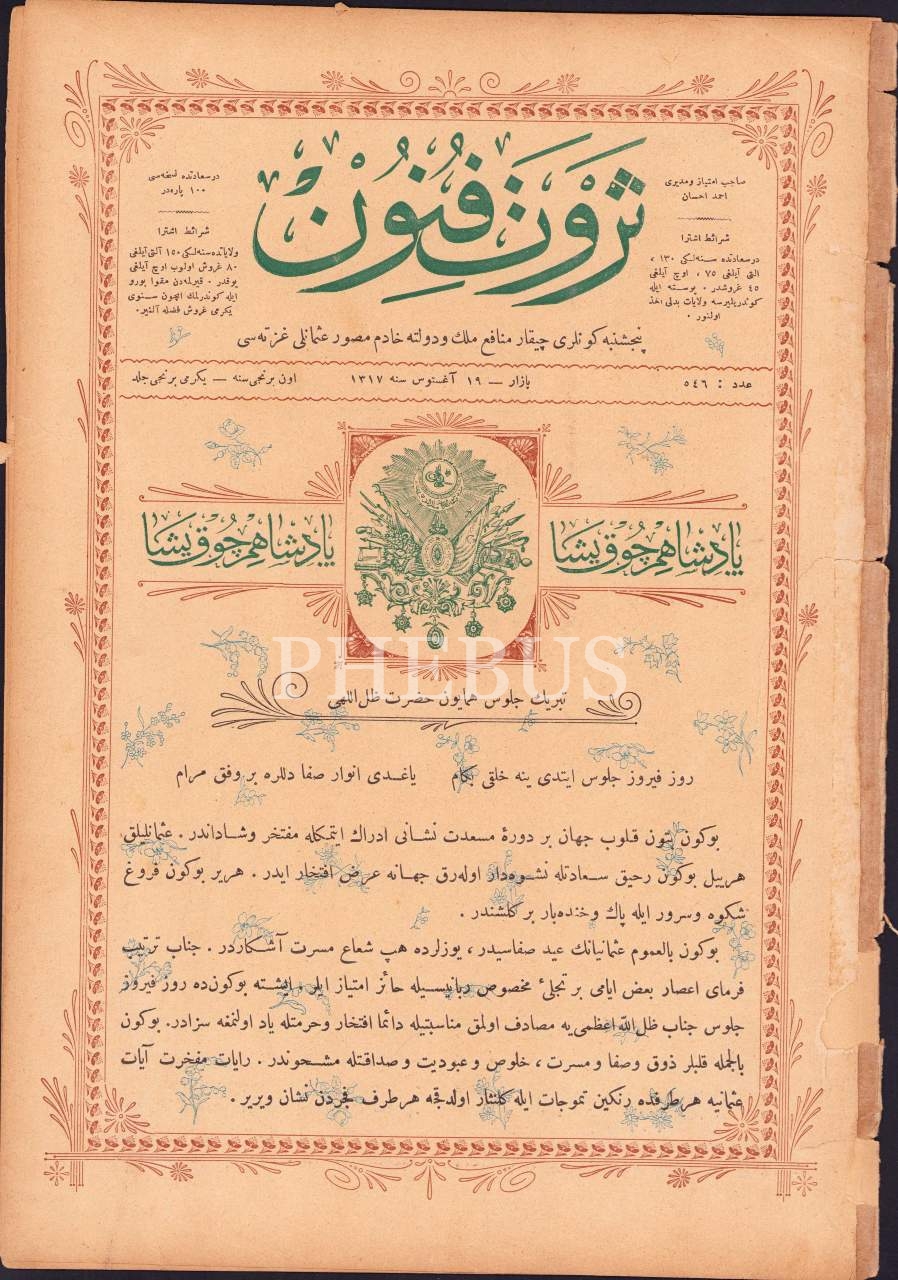 ثروت فنون
صاحب امتیاز ومدیری
احمد احسان
شرائط اشترا
درسعادتده سنه‌لکی ۱۳۰ ،
التی آیلغی ۷۵ ، اوچ آیلغی
۴۵ غروشدر . بوسته ایله
کوندریلیرسه ولایات بدلی اخذ
اولنور .
درسعادتده نسخه‌سی
۱۰۰ پاره‌در
شرائط اشترا
ولایاتده سنه‌لکی ۱۵۰ آلتی آیلغی
۸۰ غروش اولوب اوچ آیلغی
یوقدر . قیرلمه‌دن مقوا بورو
ایله کوندرلمك ایچون سنوی
یکرمی غروش فضله آلنیر .
پنجشنبه کونلری چیقار منافع ملك ودولته خادم مصور عثمانلی غزته‌سی
عدد : ۵۴۶
بازار — ۱۹ آغستوس سنه ۱۳۱۷
اون برنجی سنه — یکرمی برنجی جلد
پادشاهم چوق یشا
پادشاهم چوق یشا
PHEBUS
تبریك جلوس همایون حضرت ظل‌اللهی
روز فیروز جلوس ایتدی ینه خلقی بکام یاغدی انوار صفا دللره بر وفق مرام
بوکون بتون قلوب جهان بر دورهٔ مسعدت نشانی ادراك ایتمکله مفتخر وشاداندر . عثمانلیلق
هرییل بوکون رحیق سعادتله نشوه‌دار اوله‌رق جهانه عرض افتخار ایدر . هریر بوکون فروغ
شکوه وسرور ایله پاك وخنده‌بار بر کلشندر .
بوکون بالعموم عثمانیانك عید صفاسیدر ، یوزلرده هپ شعاع مسرت آشکاردر . جناب ترتیب
فرمای اعصار بعض ایامی بر تجلیٔ مخصوص ربانیسیله حائز امتیاز ایلر . ایشته بوکون‌ده روز فیروز
جلوس جناب ظل‌الله اعظمی‌یه مصادف اولمق مناسبتیله دائما افتخار وحرمتله یاد اولنمغه سزادر. بوکون
بالجمله قلبلر ذوق وصفا ومسرت ، خلوص وعبودیت وصداقتله مشحوندر . رایات مفخرت آیات
عثمانیه هرطرفده رنکین تموجات ایله کلنثار اولدقجه هرطرف فجردن نشان ویریر .